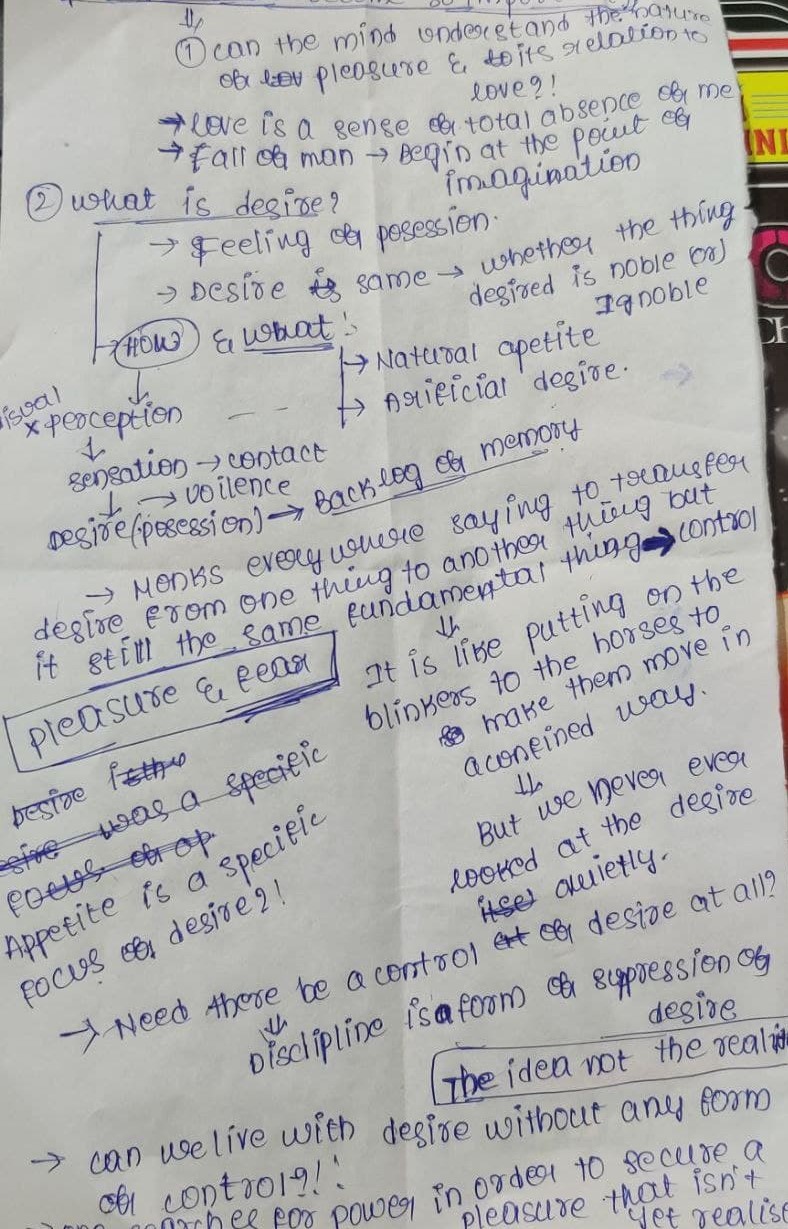 ① can the mind understand the nature
of pleasure & to its relation to
love?!
→ love is a sense of total absence of me
→ fall of man → Begin at the point of
imagination
② what is desire?
→ Feeling of posession.
→ Desire is same → whether the thing
desired is noble (or)
Ignoble
→ HOW? & what!
→ Natural apetite
→ Arificial desire.
x perception
sensation → contact
→ voilence
Desire (posession) → Backlog of memory
→ Monks everywhere saying to transfer
desire from one thing to another thing but
it still the same fundamental thing → control
pleasure & fear
It is like putting on the
blinkers to the horses to
make them move in
a confined way.
But we never ever
looked at the desire
itsel quietly.
Desire
was a specific
focus of op
Appetite is a specific
focus of desire?!
→ Need there be a control at of desire at all?
Disclipline is a form of suppression of
desire
The idea not the
→ can we live with desire without any form
of control?!
for power in order to secure a
pleasure that isn't
yet
NI